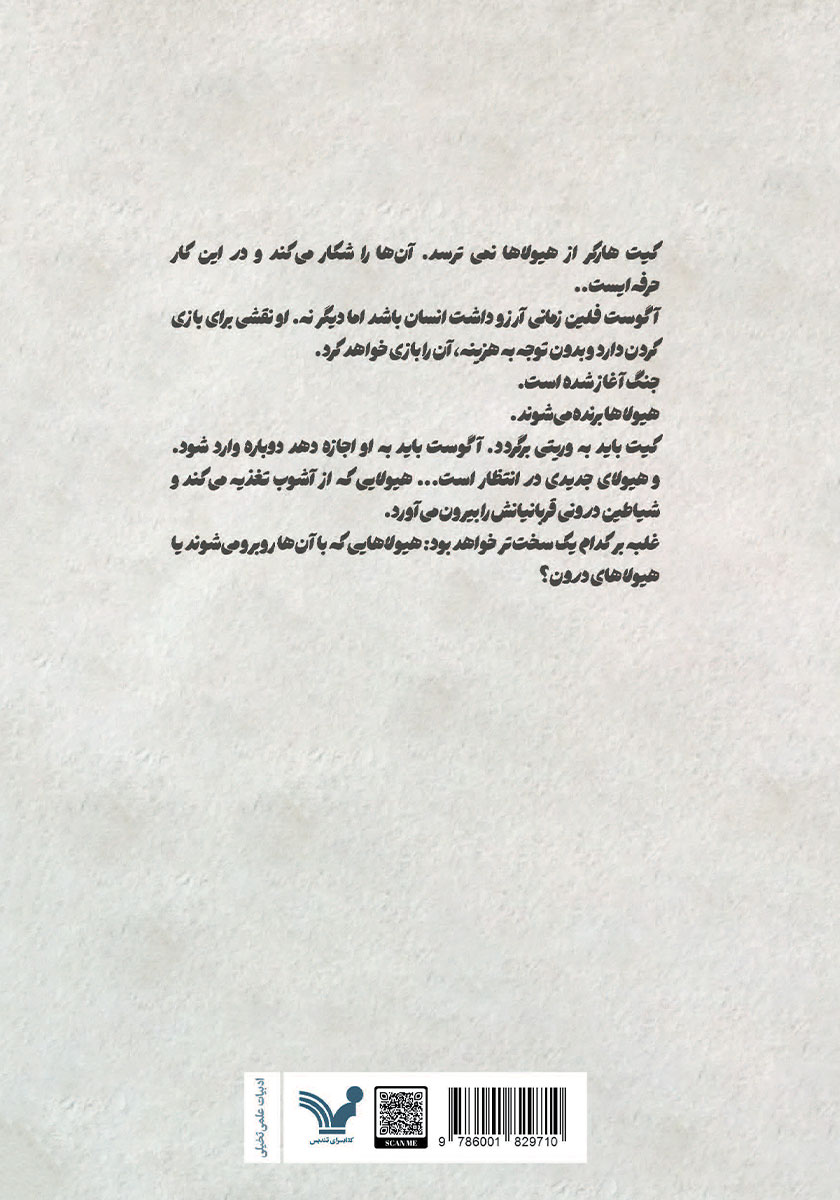 کیت هارکر از هیولاها نمی ترسد. آن‌ها را شکار می‌کند و در این کار
حرفه ایست..
آگوست فلین زمانی آرزو داشت انسان باشد اما دیگر نه. او نقشی برای بازی
کردن دارد و بدون توجه به هزینه، آن را بازی خواهد کرد.
جنگ آغاز شده است.
هیولاها برنده می‌شوند.
کیت باید به وریتی برگردد. آگوست باید به او اجازه دهد دوباره وارد شود.
و هیولای جدیدی در انتظار است... هیولایی که از آشوب تغذیه می‌کند و
شیاطین درونی قربانیانش را بیرون می‌آورد.
غلبه بر کدام یک سخت‌تر خواهد بود: هیولاهایی که با آن‌ها روبرو می‌شوند یا
هیولاهای درون؟
ادبیات علمی تخیلی
کتابسرای تندیس
SCAN ME
9 786001 829710